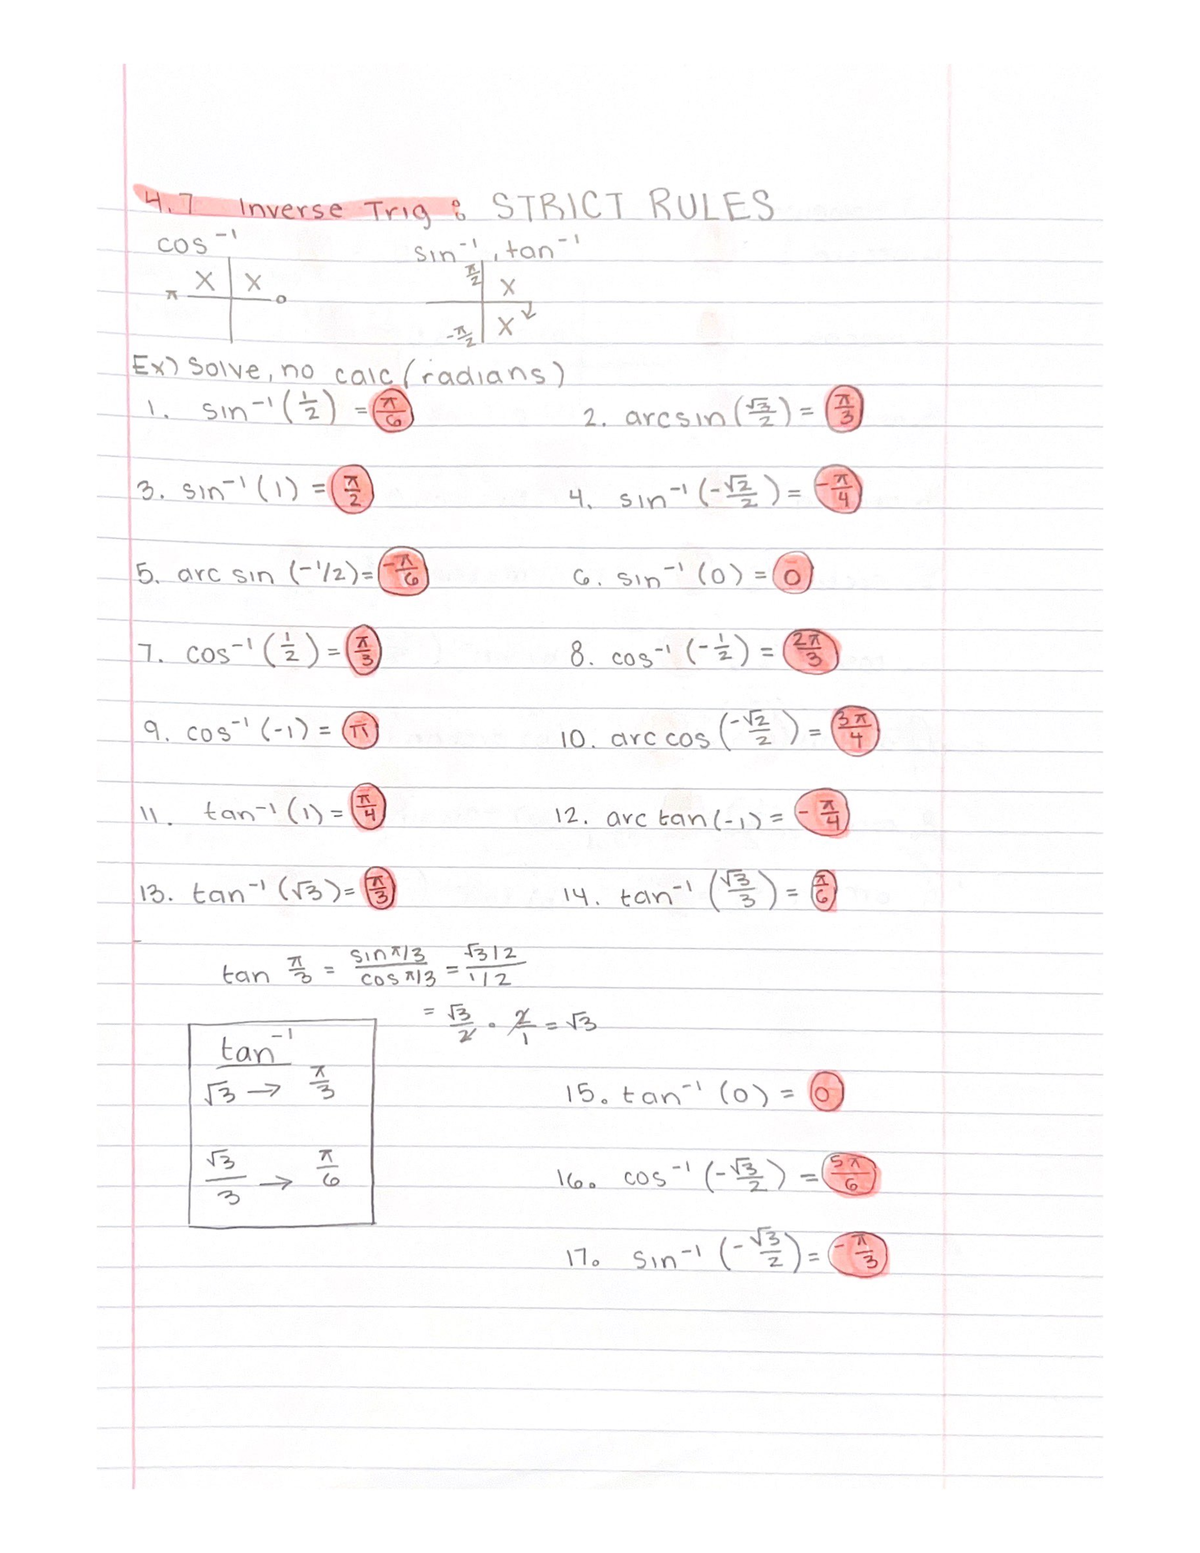 4.7 Inverse Trig : STRICT RULES
cos⁻¹ sin⁻¹, tan⁻¹
X X π 0
π/2 X
-π/2 X
Ex) Solve, no calc (radians)
1. sin⁻¹(1/2) = π/6 2. arcsin(√3/2) = π/3
3. sin⁻¹(1) = π/2 4. sin⁻¹(-√2/2) = -π/4
5. arc sin (-1/2) = -π/6 6. sin⁻¹(0) = 0
7. cos⁻¹(1/2) = π/3 8. cos⁻¹(-1/2) = 2π/3
9. cos⁻¹(-1) = π 10. arc cos (-√2/2) = 3π/4
11. tan⁻¹(1) = π/4 12. arc tan(-1) = -π/4
13. tan⁻¹(√3) = π/3 14. tan⁻¹(√3/3) = π/6
tan π/3 = sin π/3 / cos π/3 = √3/2 / 1/2
= √3/2 · 2/1 = √3
tan⁻¹
√3 → π/3
√3/3 → π/6
15. tan⁻¹(0) = 0
16. cos⁻¹(-√3/2) = 5π/6
17. sin⁻¹(-√3/2) = -π/3